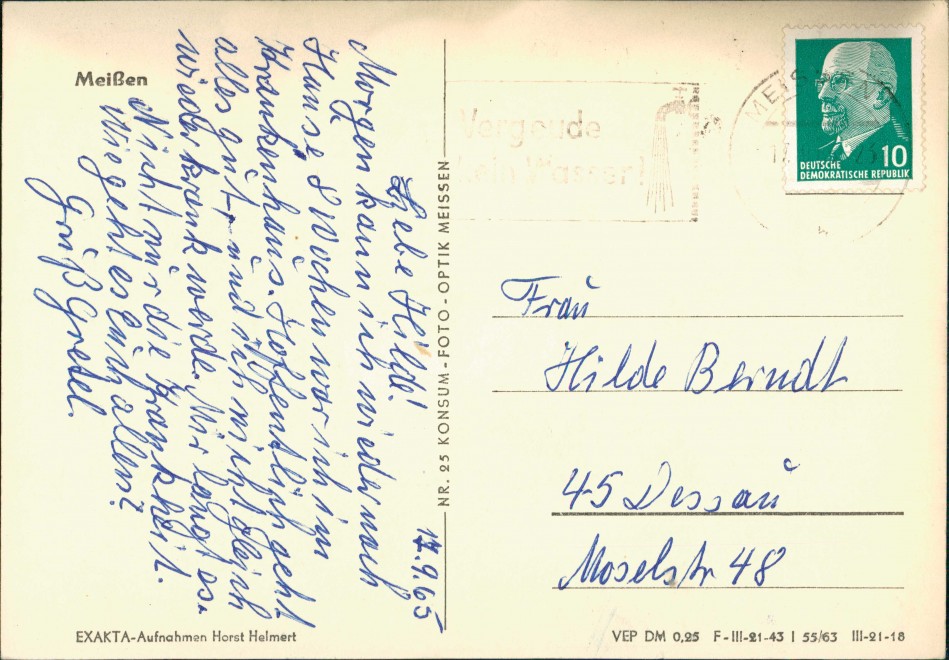 Meißen
17.9.65
Liebe Hilde!
Morgen kann ich wieder nach
Hause 8 Wochen war ich im
Krankenhaus. Hoffentlich geht
alles gut, und ich nicht gleich
wieder krank werde. Mir langt es.
Nicht nur die Krankheit.
Wie geht es Euch allen?
Gruß Gretel.
EXAKTA-Aufnahmen Horst Helmert
NR. 25 KONSUM-FOTO-OPTIK MEISSEN
Vergeude
kein Wasser!
MEISSEN
10
DEUTSCHE
DEMOKRATISCHE REPUBLIK
Frau
Hilde Berndt
45 Dessau
Moselstr 48
VEP DM 0,25 F-III-21-43 I 55/63 III-21-18